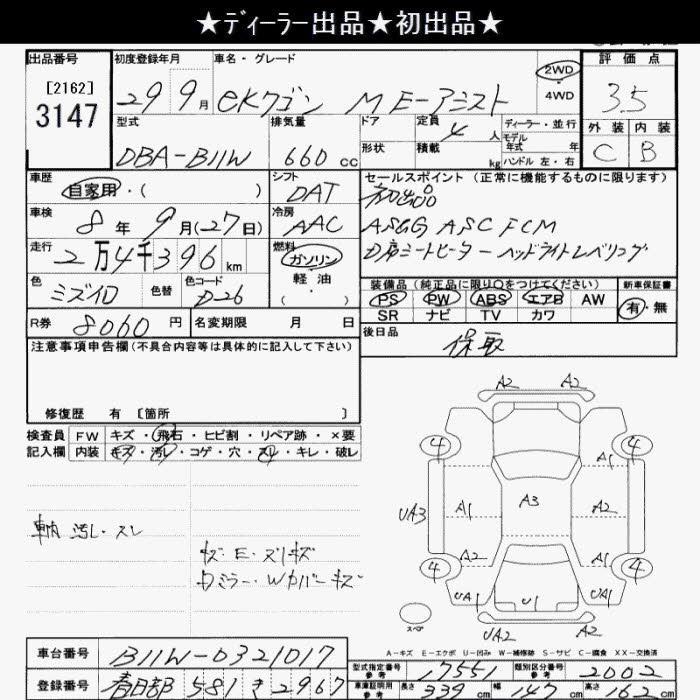 ★ディーラー出品★初出品★
出品番号 初度登録年月 車名・グレード 2WD 評価点
[2162]
3147 29 9月 eKワゴン M E-アシスト 4WD 3.5
型式 排気量 ドア 定員 4人 ディーラー・並行 外装 内装
モデル年式 年
DBA-B11W 660cc 形状 積載 kg ハンドル 左・右 C B
車歴 シフト セールスポイント (正常に機能するものに限ります)
自家用・( ) DAT 初出品
車検 8年 9月(27日) 冷房 AAC ASGG ASC FCM
走行 2万4千396km 燃料 ガソリン 軽油・( ) D席シートヒーター ヘッドライトレベリング
色 色替 色コード 装備品 (純正品に限り○をつけてください) 新車保証書
ミズイロ D26 PS PW ABS エアB AW 有・無
SR ナビ TV カワ
R券 8060円 名変期限 月 日 後日品
保取
注意事項申告欄(不具合内容等は具体的に記入して下さい)
修復歴 有 [箇所 ]
検査員 FW キズ・飛石・ヒビ割・リペア跡・×要
記入欄 内装 キズ・汚レ・コゲ・穴・スレ・キレ・破レ
A2 A2
4 4
A1
UA3 A1 A3 A2
車内 汚レ・スレ
キズ・E・ズリキズ
A2 A1
4 4
UA1 U1 UA1
スペア
UA2 A2
A-キズ E-エクボ U-凹み W-補修跡 S-サビ C-腐食 XX-交換済
車台番号 B11W-0321017 型式指定番号 参考 17551 類別区分番号 参考 2002
登録番号 春日部 581 き 2967 車庫証明用 参考 長さ 339cm 幅 147cm 高さ 162cm